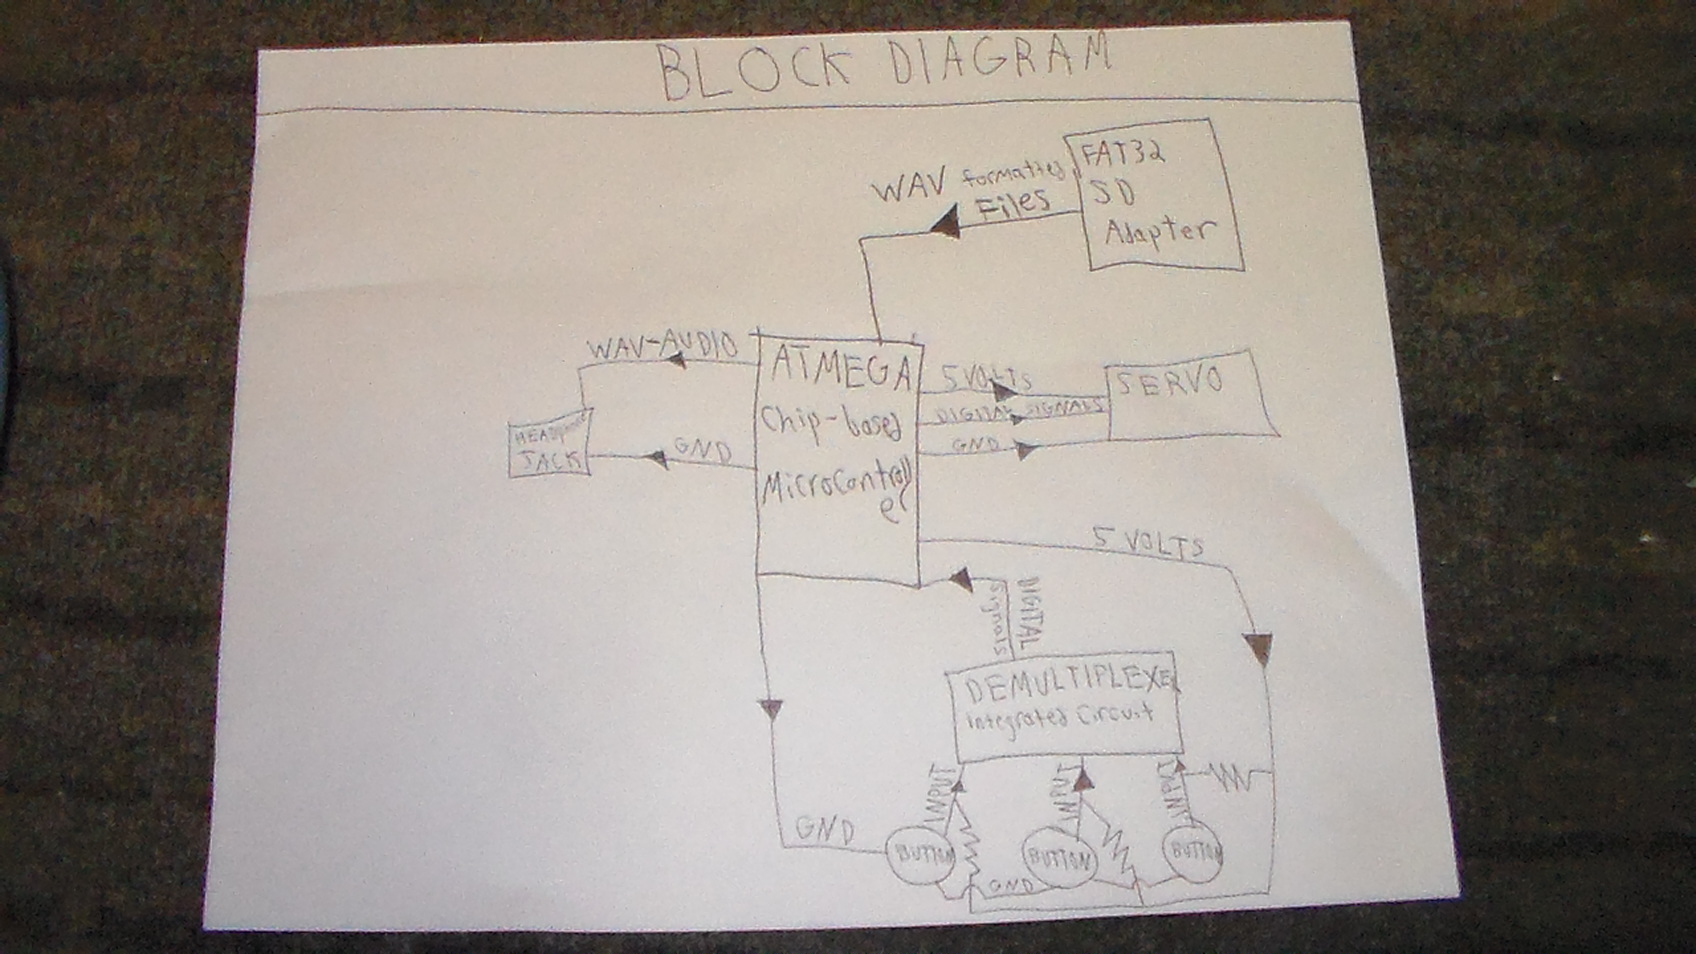 BLOCK DIAGRAM
FAT32
SD
Adapter
WAV formatted
Files
WAV-AUDIO
HEADPHONE
JACK
GND
ATMEGA
Chip-based
MicroControll
er
5 VOLTS
DIGITAL SIGNALS
GND
SERVO
5 VOLTS
DIGITAL
Signals
DEMULTIPLEXER
Integrated Circuit
INPUT
INPUT
INPUT
GND
BUTTON
BUTTON
BUTTON
GND